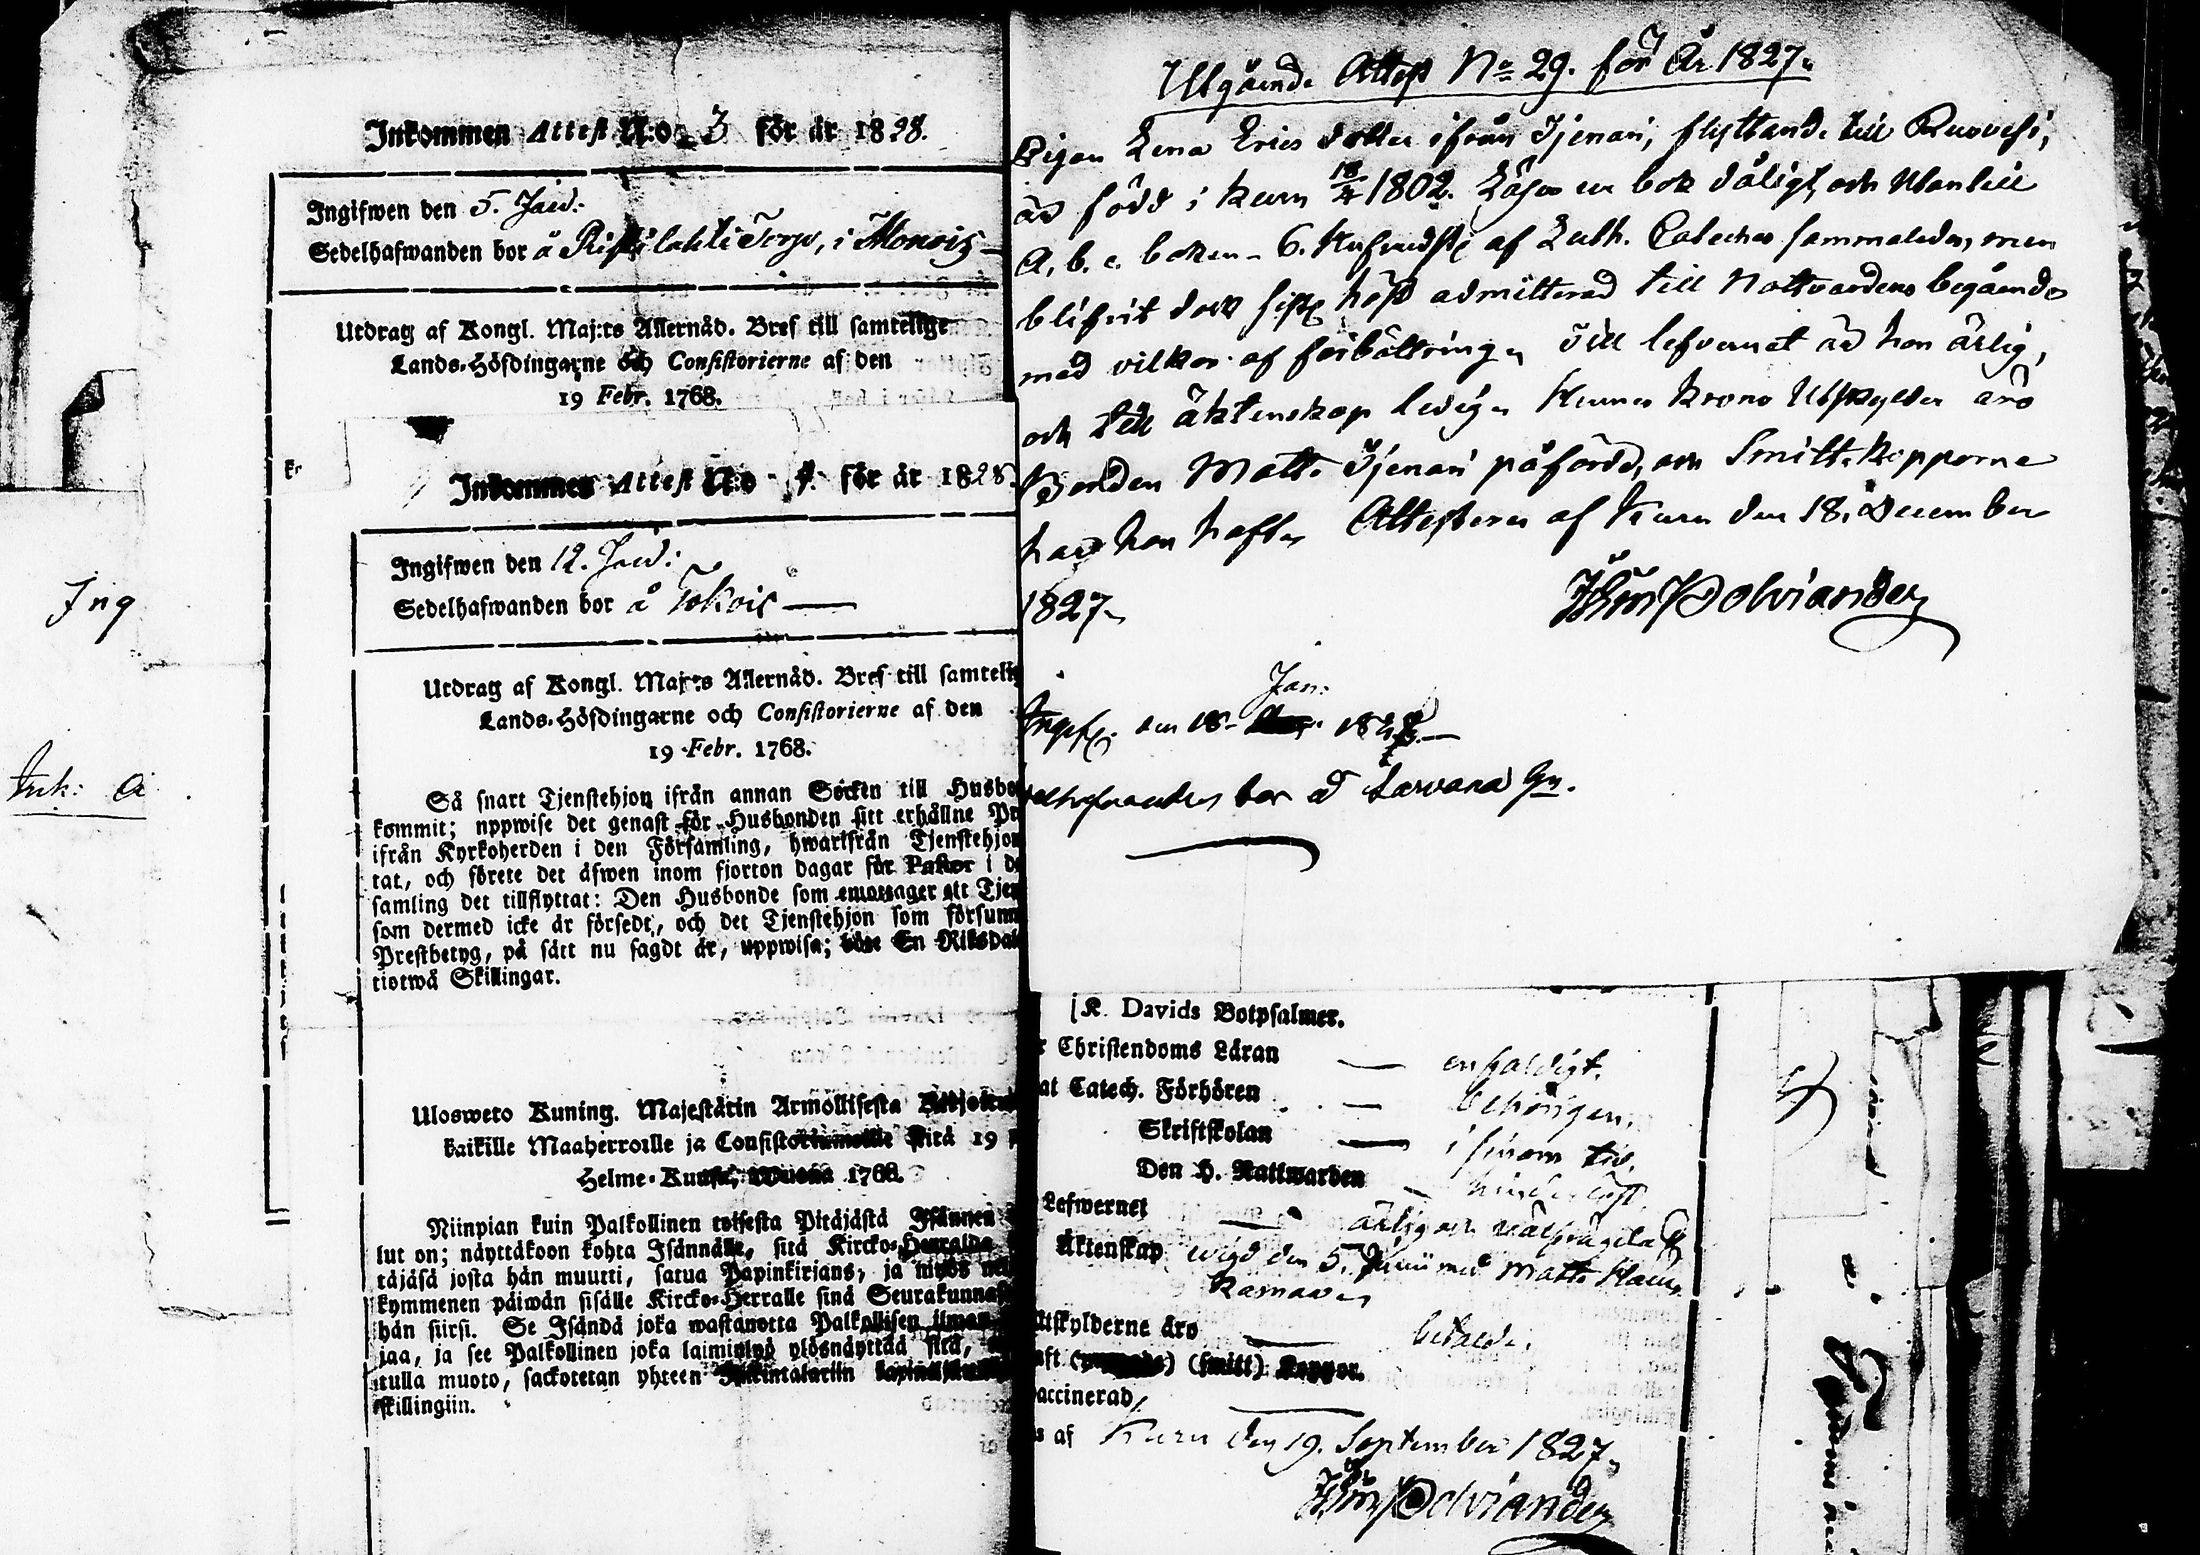 Inkommen Attest N:o 3 för år 1828.
Ingifwen den 5. Jan:
Sedelhafwanden bor å Ristilahti Torp, i Monois
Utdrag af Kongl. Maj:ts Allernåd. Bref till samtelige
Lands-Höfdingarne och Consistorierne af den
19 Febr. 1768.
Inkommen Attest N:o 4. för år 1828.
Ingifwen den 12. Jan:
Sedelhafwanden bor å Tokois
Utdrag af Kongl. Maj:ts Allernåd. Bref till samtelig
Lands-Höfdingarne och Consistorierne af den
19 Febr. 1768.
Så snart Tjenstehjon ifrån annan Socken till Husbo
kommit; uppwise det genast för Husbonden sitt erhållne Pr
ifrån Kyrkoherden i den Församling, hwarifrån Tjenstehjon
tat, och förete det äfwen inom fjorton dagar för Pastor i d
samling det tillflyttat: Den Husbonde som emottager ett Tjen
som dermed icke är försedt, och det Tjenstehjon som försum
Prestbetyg, på sätt nu sagdt är, uppwisa; böte En Riksdal
tiotwå Skillingar.
Ulosweto Kuning. Majestätin Armollisesta
kaikille Maaherroille ja Consistoriumeille sitä 19
Helme-Kuusa, wuonna 1768.
Niinpian kuin Palkollinen toisesta Pitäjästä Isännen
lut on; näyttäkoon kohta Isännälle, sitä Kircko-Herralda
täjäsä josta hän muutti, satua Papinkirjans, ja myös ne
kymmenen päiwän sisälle Kircko-Herralle sinä Seurakunnas
hän siirsi. Se Isändä joka wastanotta Palkollisen ilman
jaa, ja see Palkollinen joka laiminlyö ylösnäyttää sitä,
tulla muoto, sackotetan yhteen Rikintalariin
skillingiin.
Ing
Ink: A
Utgående Attest No 29. för År 1827.
Pigan Lena Ericsdotter ifrån Tjenari, flyttande till Ruovesi,
är född i Kuru 18/4 1802. Läser en bok dåligt, och utantill
A. b. c. boken, 6. Hufvudst: af Luth. Cateches sammaledes, men
blifvit dock sistl. höst admitterad till Nattvardens begående
med vilkor af förbättring. Till lefvernet är hon ärlig,
och till äktenskap ledig. Hennes Krono Utskylder äro
Bonden Matts Tjenari påförd, och Smitt-Kopporne
har hon haft. Attesteras af Kuru den 18. December
1827.
Joh. Polviander
Jan:
Ingifv. den 18 1828.
bor å Larvana Gn.
K. Davids Botpsalmer.
Christendoms Läran — enfaldigt.
Catech. Förhören — behörigen.
Skriftskolan — i sinom tid.
Den H. Nattwarden
Lefwernet — ärlig och välfrägdad
Äktenskap wigd den 5. Junii med Matts
utskylderne äro — betalde.
(smitt) Koppor.
accinerad
af Kuru den 19. September 1827.
Joh. Polviander